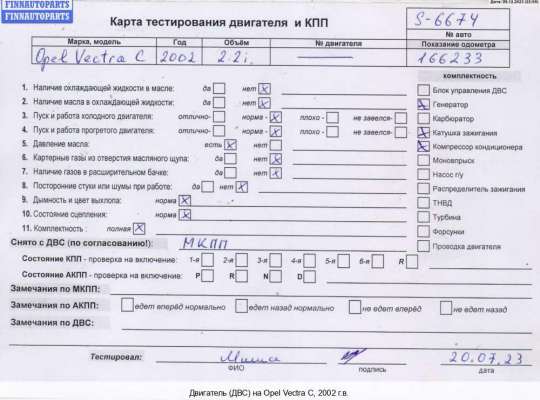 FINNAUTOPARTS
FINNAUTOPARTS
Карта тестирования двигателя и КПП
S-6674
№ авто
Марка, модель Год Объём № двигателя Показание одометра
Opel Vectra C 2002 2.2i. — 166233
комплектность
1. Наличие охлаждающей жидкости в масле: да нет X
2. Наличие масла в охлаждающей жидкости: да нет X
3. Пуск и работа холодного двигателя: отлично- норма- X плохо- не завелся-
4. Пуск и работа прогретого двигателя: отлично- норма- X плохо- не завелся-
5. Давление масла: есть X нет
6. Картерные газы из отверстия масляного щупа: да нет X
7. Наличие газов в расширительном бачке: да нет X
8. Посторонние стуки или шумы при работе: да нет X
9. Дымность и цвет выхлопа: норма X
10. Состояние сцепления: норма X
11. Комплектность : полная X
Блок управления ДВС
X Генератор
Карбюратор
X Катушка зажигания
X Компрессор кондиционера
Моновпрыск
Насос г/у
Распределитель зажигания
ТНВД
Турбина
Форсунки
Проводка двигателя
Снято с ДВС (по согласованию!): МКПП
Состояние КПП - проверка на включение: 1-я 2-я 3-я 4-я 5-я 6-я R
Состояние АКПП - проверка на включение: P R N D
Замечания по МКПП:
Замечания по АКПП: едет вперёд нормально едет назад нормально не едет вперёд не едет назад
Замечания по ДВС:
Тестировал: Миша 20.07.23
ФИО подпись дата
Двигатель (ДВС) на Opel Vectra C, 2002 г.в.